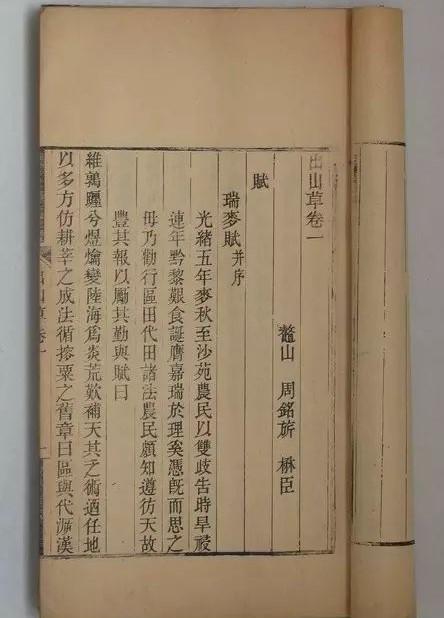 出山草卷一
鼇山 周銘旂 楙臣
賦
瑞麥賦并序
光緒五年麥秋至沙苑農民以雙歧告時旱祲
連年黔黎艱食誕膺嘉瑞於理奚憑旣而思之
毋乃勸行區田代田諸法農民頗知遵仿天故
豐其報以勵其勤與賦曰
維鶉躔兮煜爚變陸海爲炎荒歎補天其乏術適任地
以多方仿耕莘之成法循搜粟之舊章曰區與代溯漢